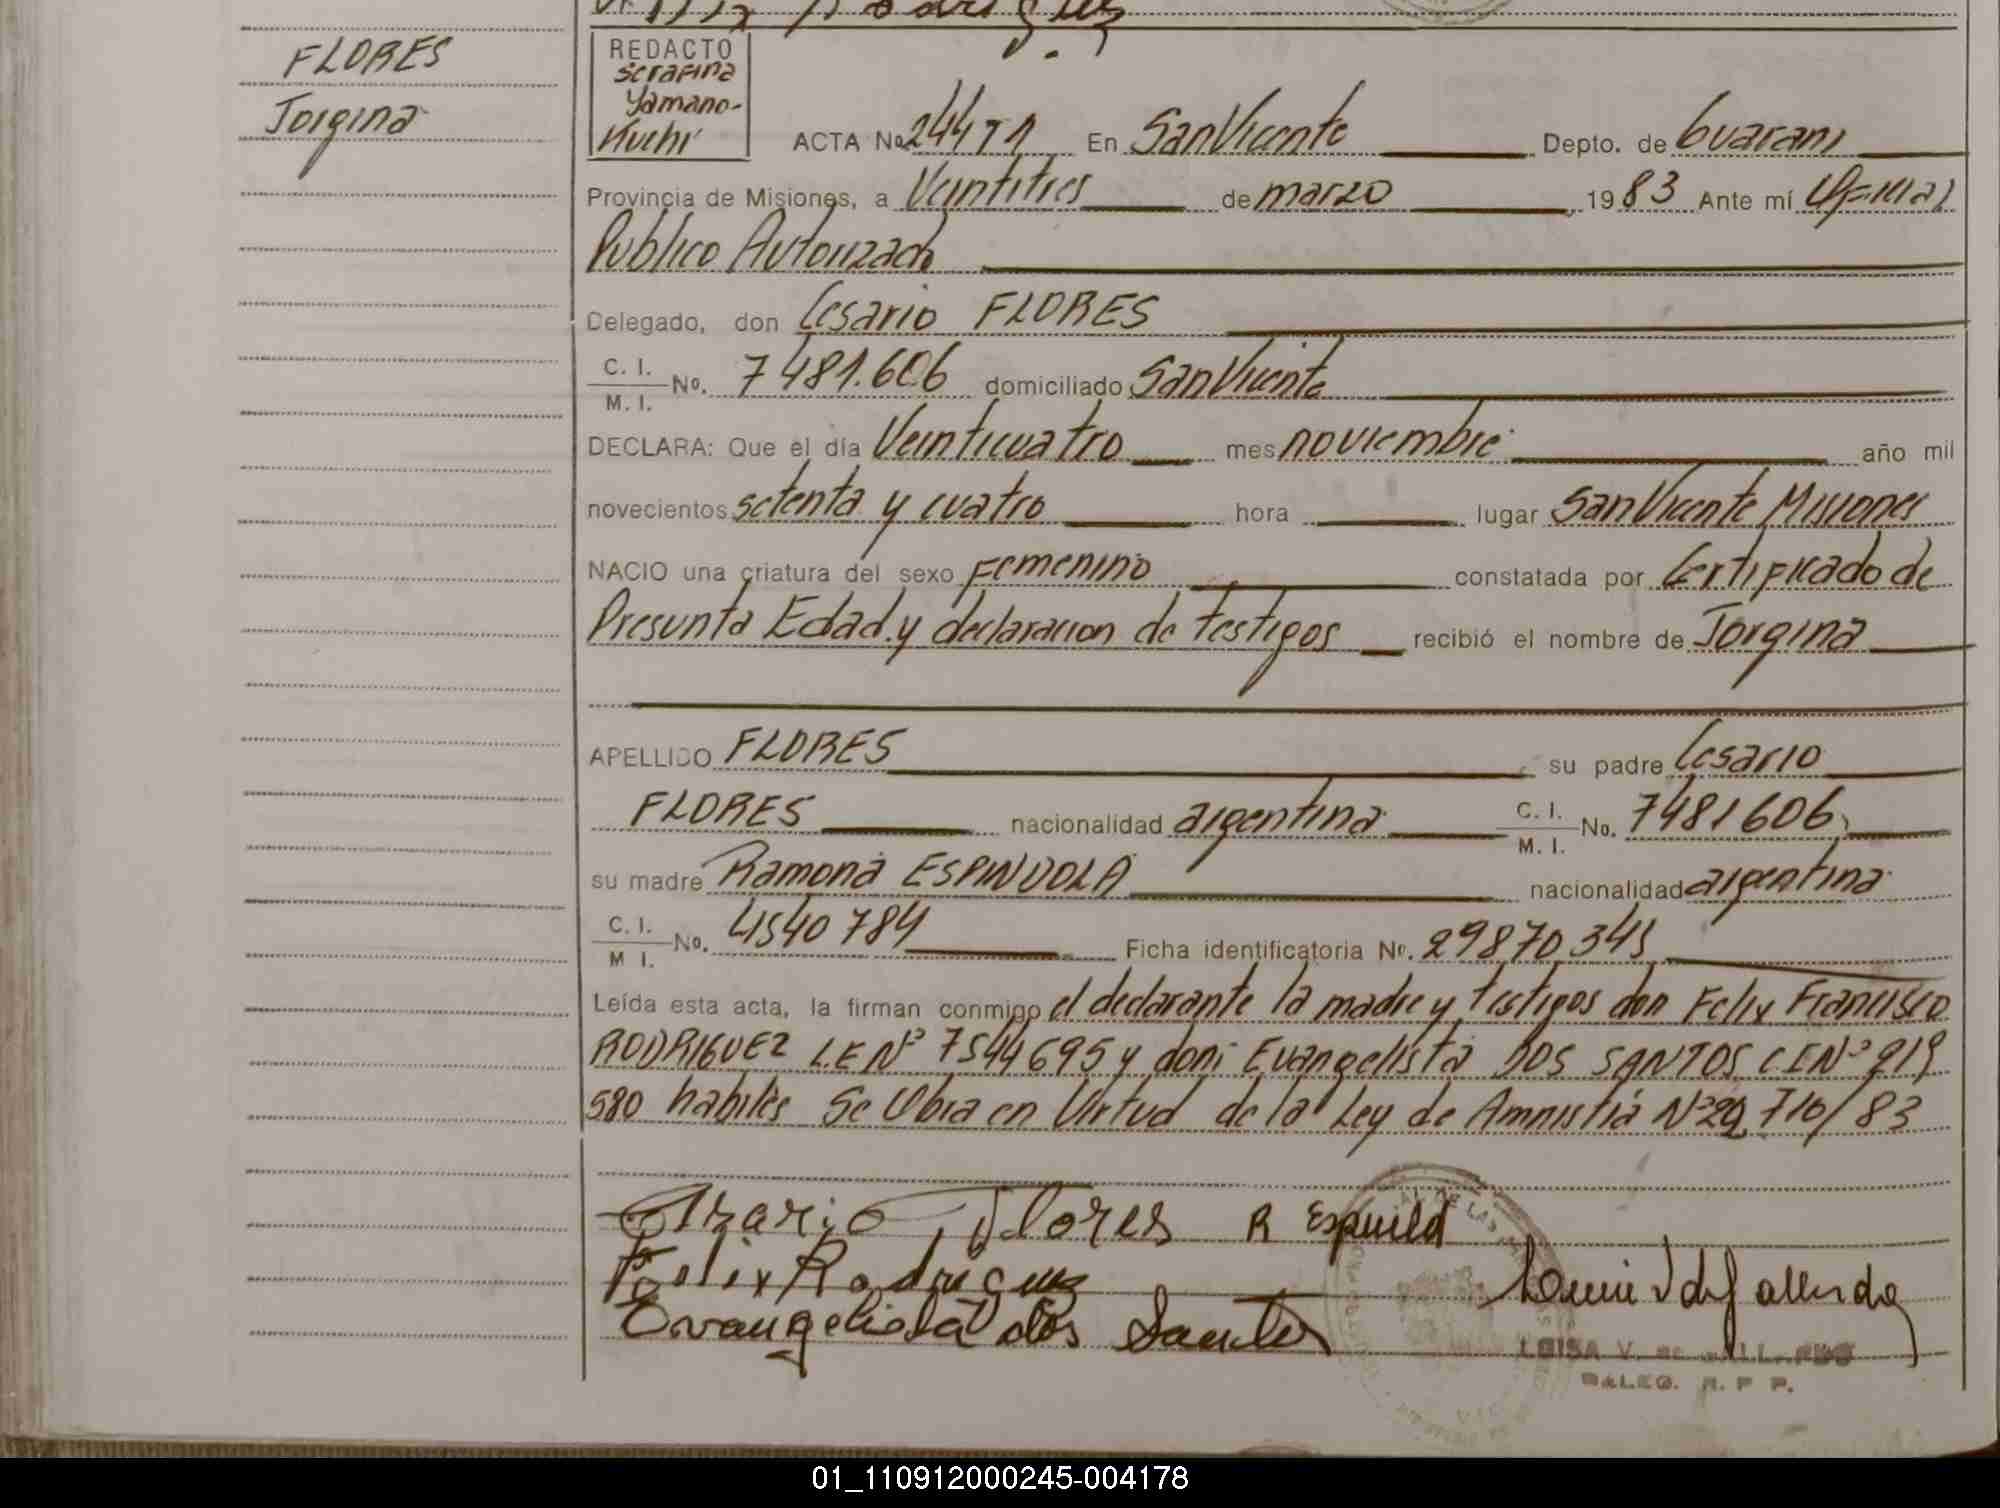 FLORES
Jorgina
REDACTO
Serafina
Yamano-
Kuchi
ACTA No 244 T1 En San Vicente Depto. de Guarani
Provincia de Misiones, a Veintitres de marzo 1983 Ante mí Oficial
Publico Autorizado
Delegado, don Cesario FLORES
C. I.
M. I. No. 7481.606 domiciliado San Vicente
DECLARA: Que el día Veinticuatro mes noviembre año mil
novecientos setenta y cuatro hora lugar San Vicente Misiones
NACIO una criatura del sexo Femenino constatada por Certificado de
Presunta Edad y declaracion de testigos recibió el nombre de Jorgina
APELLIDO FLORES su padre Cesario
FLORES nacionalidad argentina C. I.
M. I. No. 7481606
su madre Ramona ESPINDOLA nacionalidad argentina
C. I.
M I. No. 4540784 Ficha identificatoria No. 29870345
Leída esta acta, la firman conmigo el declarante la madre y testigos don Felix Francisco
RODRIGUEZ L.E Nº 7544695 y don Evangelista DOS SANTOS C.I Nº 219
580 habiles Se Obra en Virtud de la Ley de Amnistia Nº 22.710/83
Flores R Espindola
Felix Rodriguez
Evangelista dos Santos
LUISA V. DE GALLARDO
DELEG. R. P P.
01_110912000245-004178